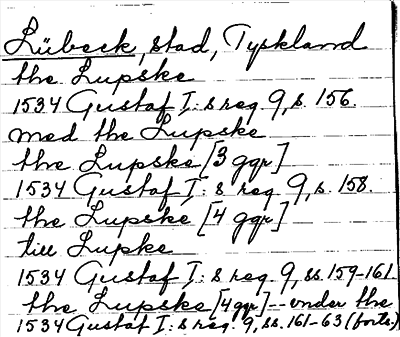 Lübeck, stad, Tyskland
the Lupske
1534 Gustaf I: s reg. 9, s. 156.
med the Lupske
the Lupske [3 ggr]
1534 Gustaf I: s reg. 9, s. 158.
the Lupske [4 ggr]
till Lupke
1534 Gustaf I: s reg. 9, ss. 159-161
the Lupske [4 ggr] -- under the
1534 Gustaf I: s reg. 9, ss. 161-63 (forts.)